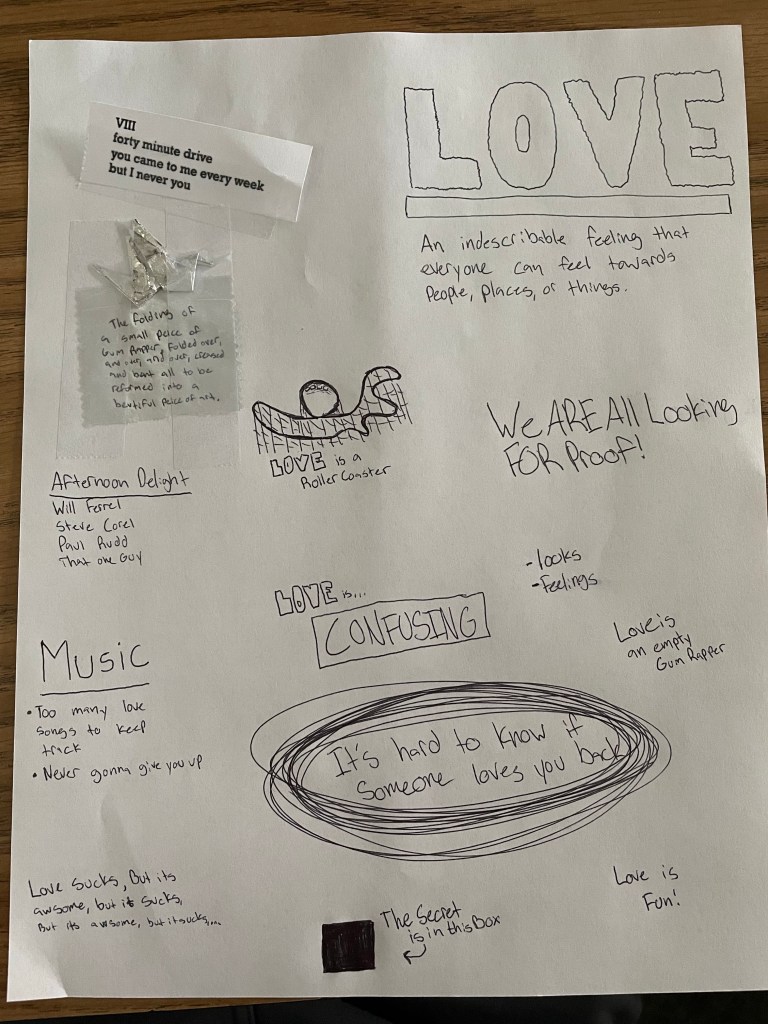 VIII
forty minute drive
you came to me every week
but I never you
LOVE
An indescribable feeling that
everyone can feel towards
People, Places, or things.
The folding of
a small peice of
Gum Rapper, Folded over,
and over, and over, creased
and bent all to be
reformed into a
beautiful peice of art.
LOVE is a
Roller Coaster
We ARE All Looking
FOR Proof!
Afternoon Delight
Will Ferrel
Steve Corel
Paul Rudd
That one Guy
- looks
- Feelings
LOVE is...
CONFUSING
Love is
an empty
Gum Rapper
Music
• Too many love
songs to keep
track
• Never gonna give you up
It's hard to know if
someone loves you back
Love sucks, But its
awsome, but it sucks,
But its awsome, but it sucks,...
Love is
Fun!
The Secret
is in this Box